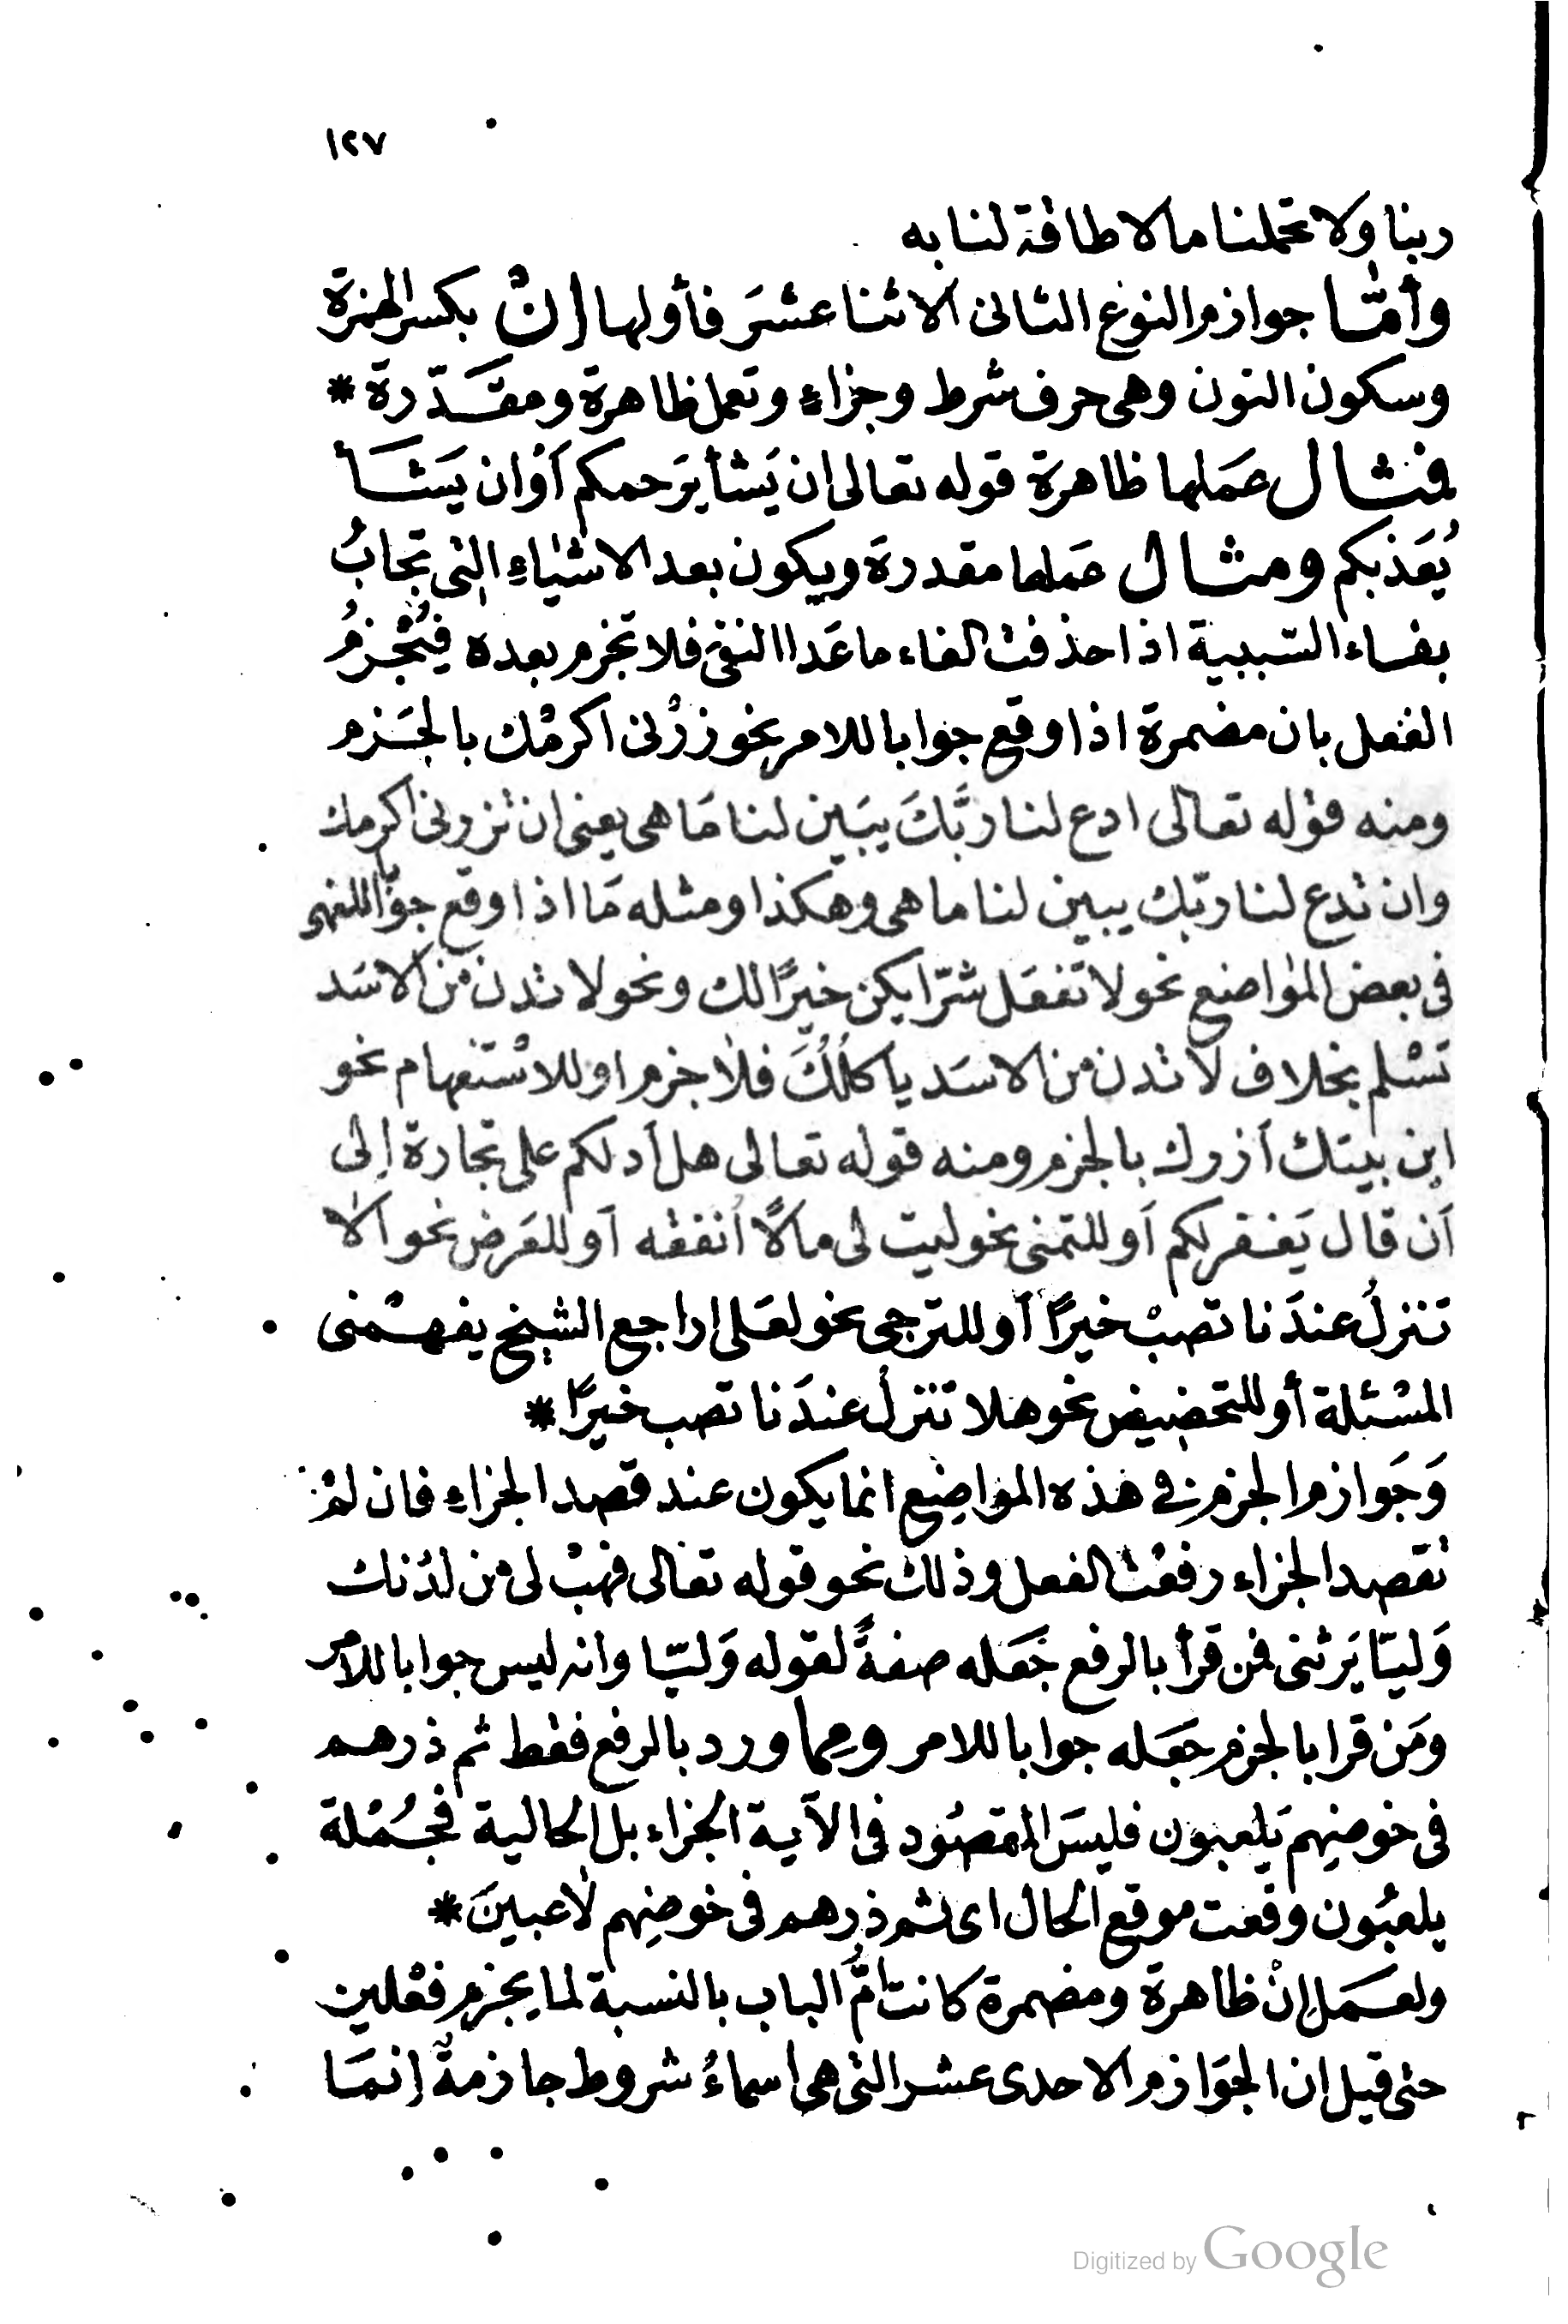 ١٢٧
ربنا ولا تحملنا مالا طاقة لنا به
وأمّا جوازم النوع الثانى الاثنا عشَر فأولها إنْ بكسر الهمزة
وسكون النون وهى حرف شرط وجزاءٍ وتعمل ظاهرة ومقَدّرة *
فمثال عمَلها ظاهرة قوله تعالى ان يَشأ يَرحمكم أوْ ان يَشَأ
يُعَذبكم ومثال عمَلها مقدرة ويكون بعد الاشيَاءِ التى تجابُ
بفاء السّببية اذا حذفت الفاء ما عَدا النفىَ فلا تجزم بعده فيُجْزمُ
الفعل بان مضمرة اذا وقع جوابا للامر نحو زرْنى اكرمْك بالجَزم
ومنه قوْله تعالى ادع لنا ربَّكَ يبَين لنا مَا هى يعنى ان تزرنى اكرمك
وان تدع لنا ربّك يبين لنا ما هى وهكذا ومثله مَا اذا وقع جوَابا للنهى
فى بعض الموَاضع نحو لا تَفعَل شرّا يكن خيرًا لك ونحو لا تدن من الاسَد
تسْلم بخلاف لا تدن من الاسَد يأكلُكَ فلا جزم او للاسْتفهام نحو
اين بيتك أزرك بالجزم ومنه قوله تعالى هل أدلكم على تجارة إلى
أن قال يَغفر لكم أو للتمنى نحو ليت لى مالاً أنفقه أو للعَرض نحو ألا
تَنزلُ عندَنا تصبْ خيرًا أو للترجى نحو لعَلى اراجع الشيخ يفهمْنى
المسْئلة أو للتحضيض نحو هلا تنزلُ عندَنا تصب خيرًا *
وَجَوازم الجزم فى هذه المواضِع انما يكون عند قصد الجزاءِ فان لمْ
تقصد الجزاء رفعْت الفعل وذلك نحو قوله تعَالى فهبْ لى من لدُنك
وَليّا يَرثنى فمن قرأ بالرفع جَعَله صفةً لقوله وَليّا وانه ليس جوابا للامر
ومَن قرا بالجزم جَعَله جوابا للامر ومما ورد بالرفع فقط ثم ذرهم
فى خوضِهم يَلعبون فليسَ المقصُود فى الآية الجزاء بل الحالية فجُمْلة
يلعبُون وقعت موقع الحال اى ثم ذرهم فى خوضِهم لاعبينَ *
ولعمَل إنْ ظاهرة ومضمرة كانت أمُّ الباب بالنسبة لما يجزم فعْلين
حتى قيل ان الجوَازم الاحدى عشر التى هى اسماءُ شروط جازمةٌ إنمَا
Digitized by Google